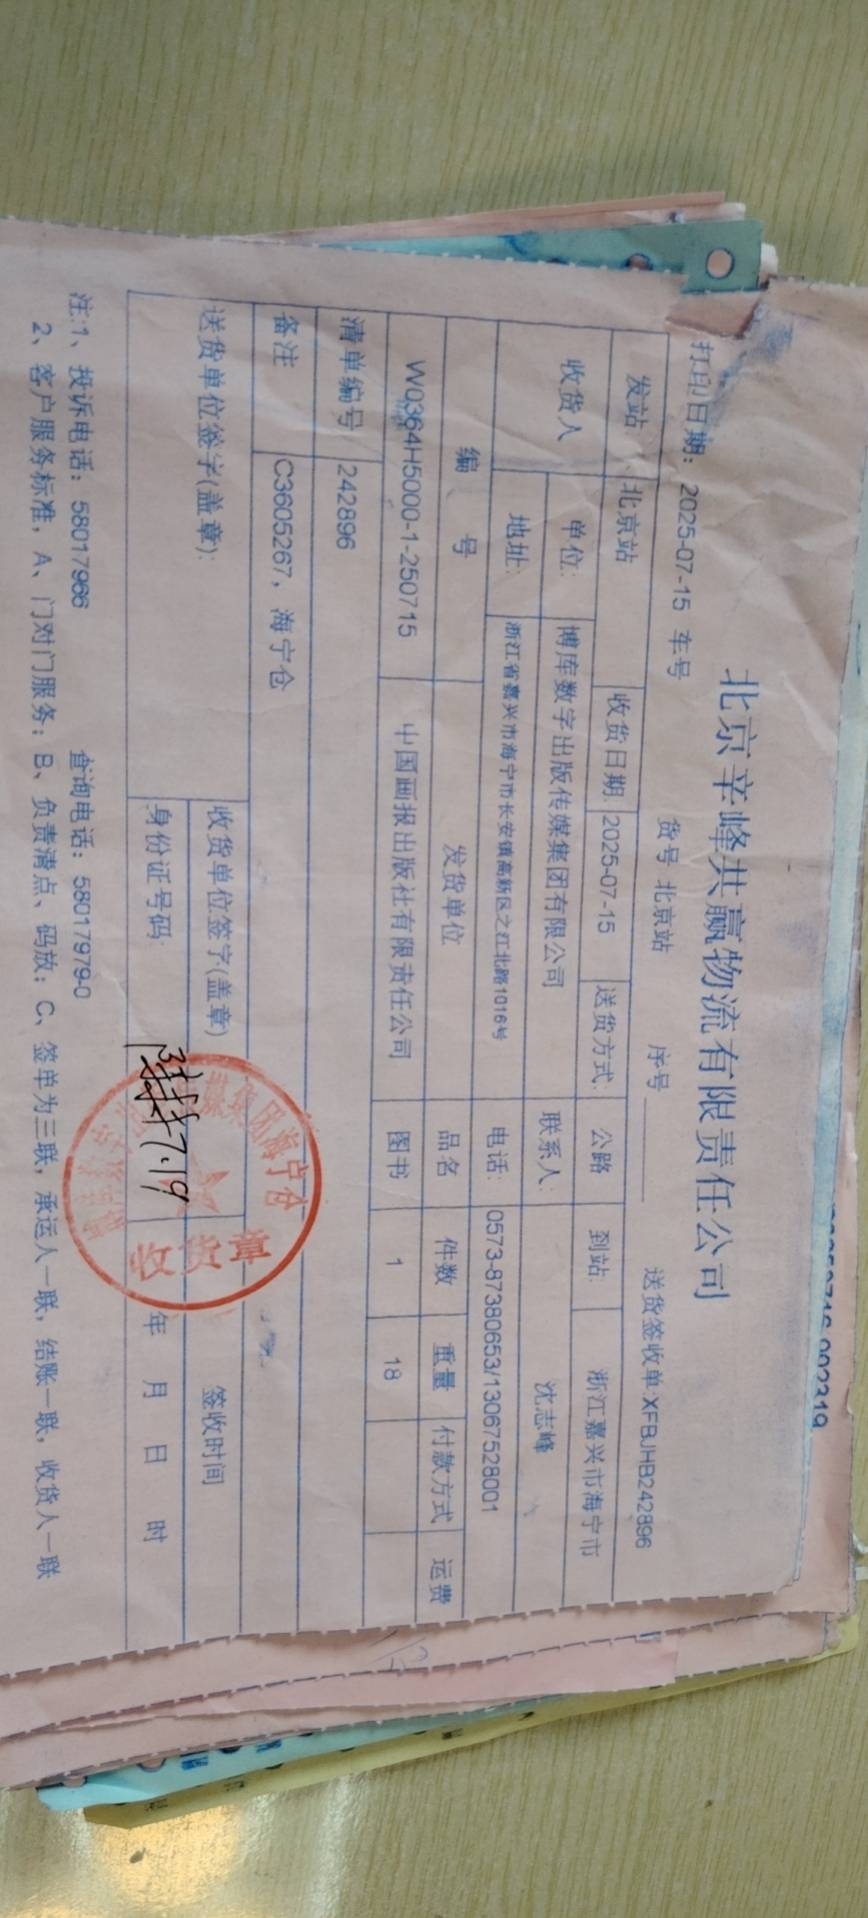 北京辛峰共赢物流有限责任公司
打印日期: 2025-07-15 车号 货号 北京站 序号 送货签收单:XFBJHB242896
发站 北京站 收货日期: 2025-07-15 送货方式: 公路 到站: 浙江嘉兴市海宁市
收货人 单位: 博库数字出版传媒集团有限公司 联系人: 沈志峰
地址: 浙江省嘉兴市海宁市长安镇高新区之江北路1016号 电话: 0573-87380653/13067528001
编 号 发货单位 品名 件数 重量 付款方式 运费
W0364H5000-1-250715 中国画报出版社有限责任公司 图书 1 18
清单编号 242896
备注 C3605267, 海宁仓
送货单位签字(盖章): 收货单位签字(盖章) 签收时间
身份证号码: 年 月 日 时
7.19
集团海宁仓
收货章
注:1、投诉电话: 58017966 查询电话: 58017979-0
2、客户服务标准, A、门对门服务; B、负责清点、码放; C、签单为三联, 承运人一联, 结账一联, 收货人一联